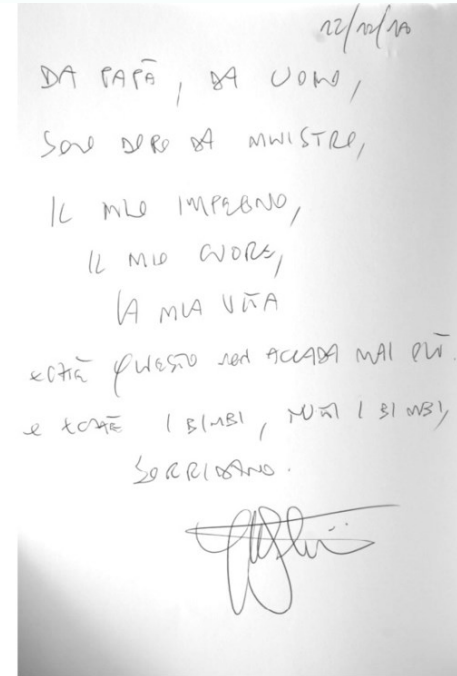 DA PAPÀ, DA UOMO,
SOLO DOPO DA MINISTRO,
IL MIO IMPEGNO,
IL MIO CUORE,
LA MIA VITA
QUESTO non ACCADA MAI PIÙ.
e I BIMBI, TUTTI I BIMBI,
SORRIDANO.